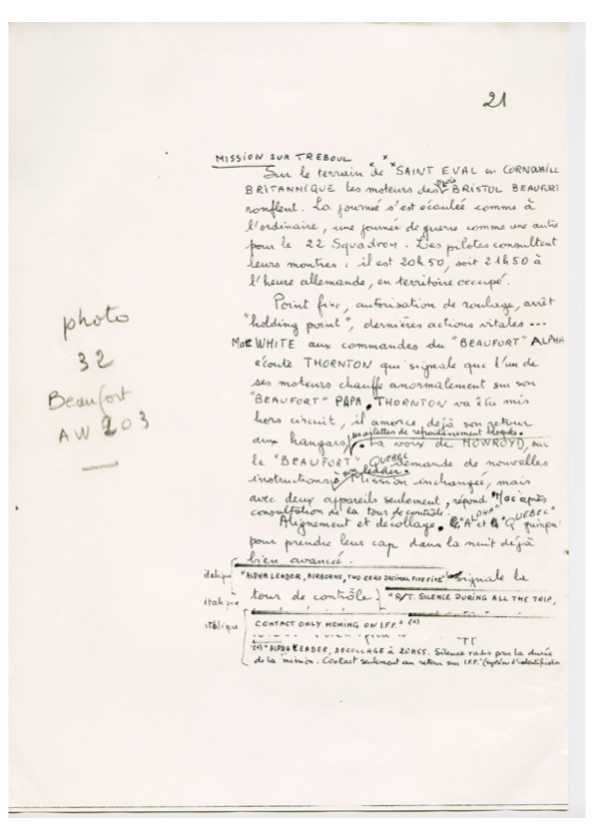 21
MISSION SUR TREBOUL
Sur le terrain de "SAINT EVAL en CORNOUAILLE
BRITANNIQUE les moteurs des trois BRISTOL BEAUFORT
ronflent. La journée s'est écoulée comme à
l'ordinaire, une journée de guerre comme une autre
pour le 22 Squadron. Les pilotes consultent
leurs montres : il est 20h50, soit 21h50 à
l'heure allemande, en territoire occupé.
Point fixe, autorisation de roulage, arrêt
"holding point", dernières actions vitales ...
Mac WHITE aux commandes du "BEAUFORT" ALPHA
écoute THORNTON qui signale que l'un de
ses moteurs chauffe anormalement sur son
"BEAUFORT" PAPA. THORNTON va être mis
hors circuit, il amorce déjà son retour
aux hangars, volettes de refroidissement bloqués. La voix de HOWROYD, sur
le "BEAUFORT" QUEBEC demande de nouvelles
instructions au leader. Mission inchangée, mais
avec deux appareils seulement, répond Mac après
consultation de la tour de contrôle.
Alignement et décollage. "ALPHA" et "QUEBEC" grimpent
pour prendre leur cap dans la nuit déjà
bien avancée.
italique "ALPHA LEADER, AIRBORNE, TWO ZERO DECIMAL FIVE FIVE" signale la
tour de contrôle
italique "R/T. SILENCE DURING ALL THE TRIP,
italique CONTACT ONLY HOMING ON I.F.F." (*)
(*) "ALPHA LEADER, DECOLLAGE à 20H55. Silence radio pour la durée
de la mission. Contact seulement au retour sur I.F.F." (système d'identification
photo
32
Beaufort
AW 203